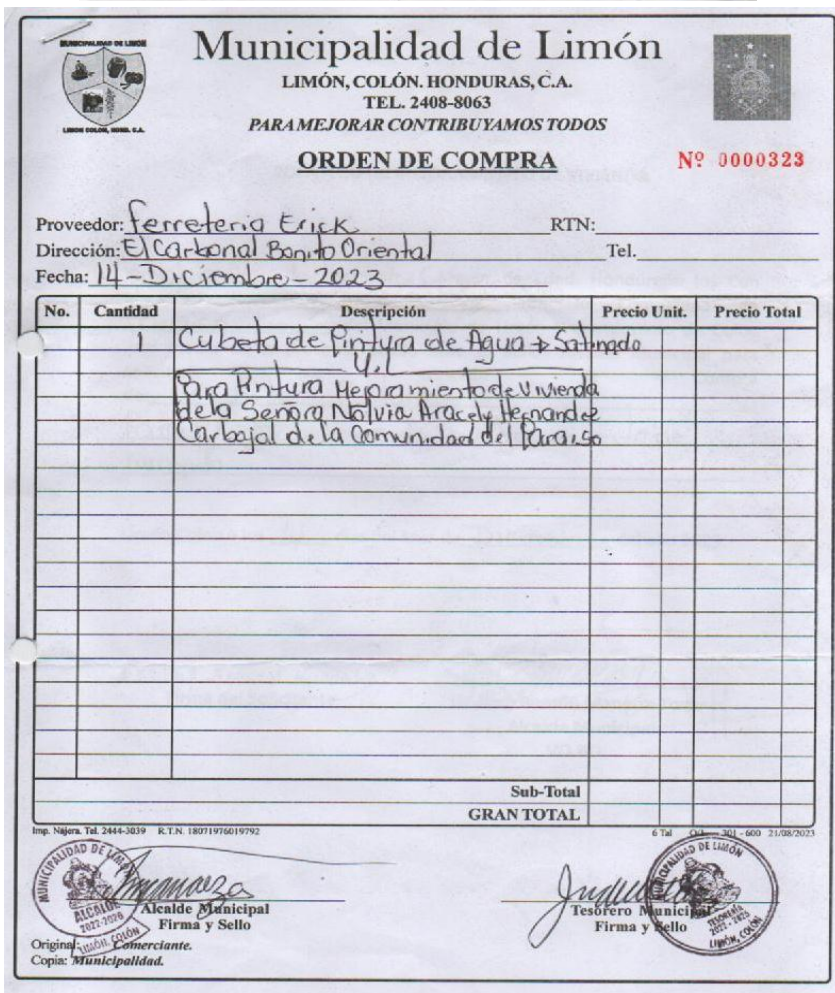 MUNICIPALIDAD DE LIMON
LIMON COLON, HOND. C.A.
Municipalidad de Limón
LIMÓN, COLÓN. HONDURAS, C.A.
TEL. 2408-8063
PARA MEJORAR CONTRIBUYAMOS TODOS
ORDEN DE COMPRA
Nº 0000323
Proveedor: Ferreteria Erick RTN:
Dirección: El Carbonal Bonito Oriental Tel.
Fecha: 14-Diciembre-2023
No. Cantidad Descripción Precio Unit. Precio Total
1 Cubeta de Pintura de Agua → Satinado
U.L
Para Pintura Mejoramiento de Vivienda
de la Señora Nolvia Aracely Hernandez
Carbajal de la Comunidad del Paraiso
Sub-Total
GRAN TOTAL
Imp. Najera. Tel. 2444-3039 R.T.N. 18071976019792 6 Tal 301 - 600 21/08/2023
MUNICIPALIDAD DE LIMÓN
ALCALDE
2022-2026
LIMÓN, COLÓN
Alcalde Municipal
Firma y Sello
MUNICIPALIDAD DE LIMÓN
TESORERÍA
2022 - 2026
LIMÓN, COLÓN
Tesorero Municipal
Firma y Sello
Original: Comerciante.
Copia: Municipalidad.